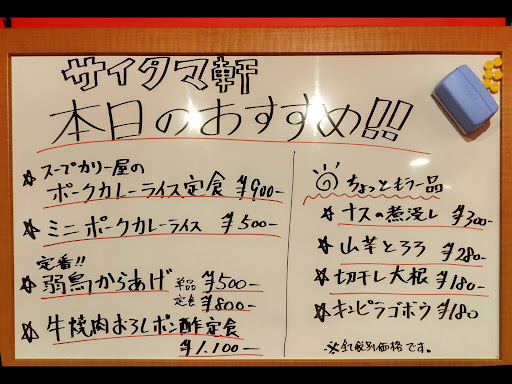 サイタマ軒
本日のおすすめ!!
☆ スープカリー屋の
ポークカレーライス定食 ¥900-
☆ ミニポークカレーライス ¥500-
定番!!
☆ 弱鳥からあげ 単品 ¥500-
定食 ¥800-
☆ 牛焼肉おろしポン酢定食
¥1.100-
ちょっともう一品
☆ ナスの煮浸し ¥300-
☆ 山芋とろろ ¥280-
☆ 切干し大根 ¥180-
☆ キンピラゴボウ ¥180
※全て税別価格です。